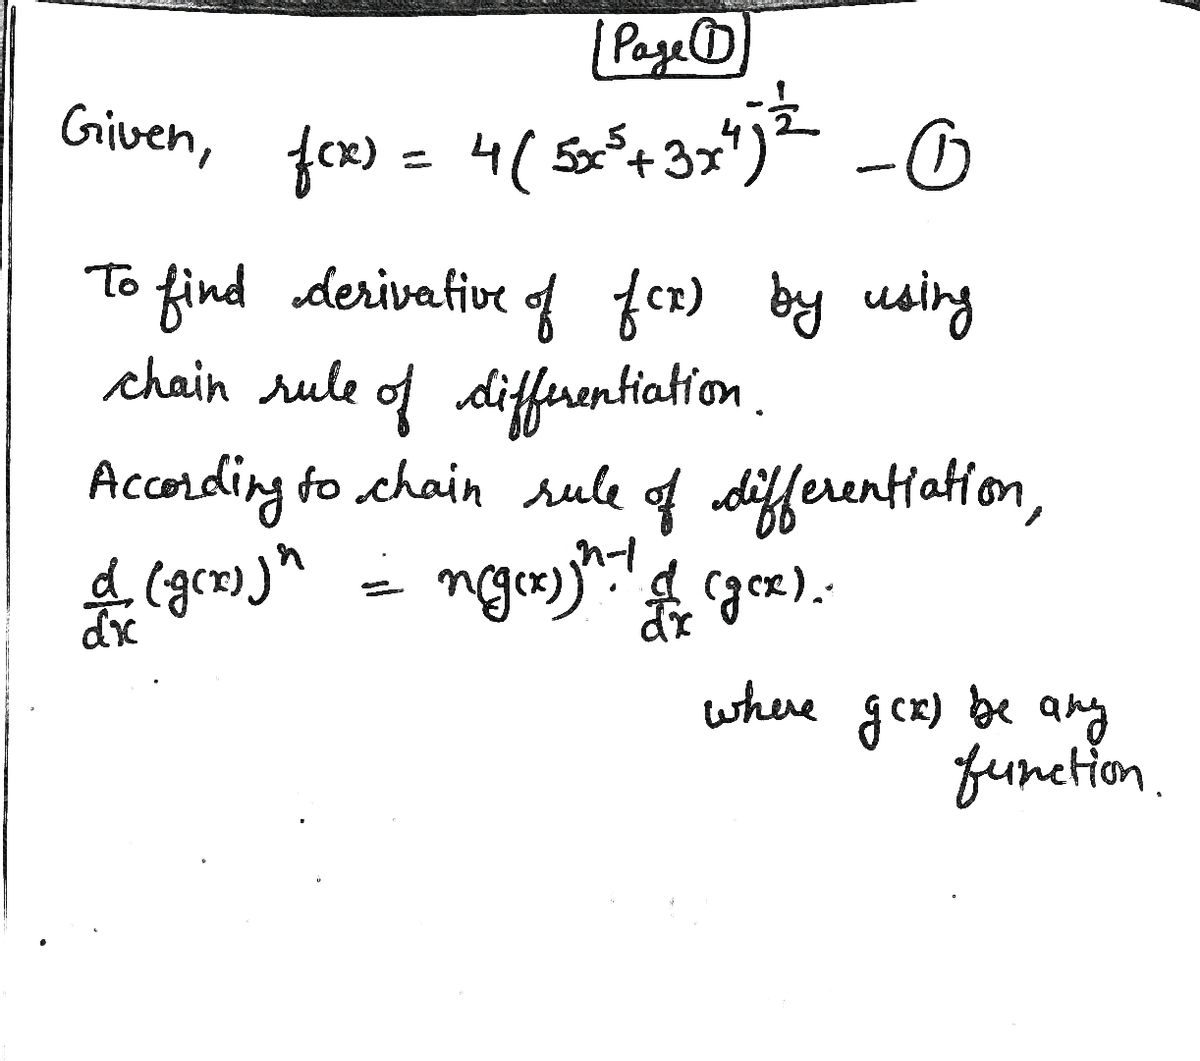 Page ①
Given, f(x) = 4(5x⁵+3x⁴)^(-1/2) - ①
To find derivative of f(x) by using
chain rule of differentiation.
According to chain rule of differentiation,
d/dx (g(x))ⁿ = n(g(x))ⁿ⁻¹. d/dx (g(x).
where g(x) be any
function.